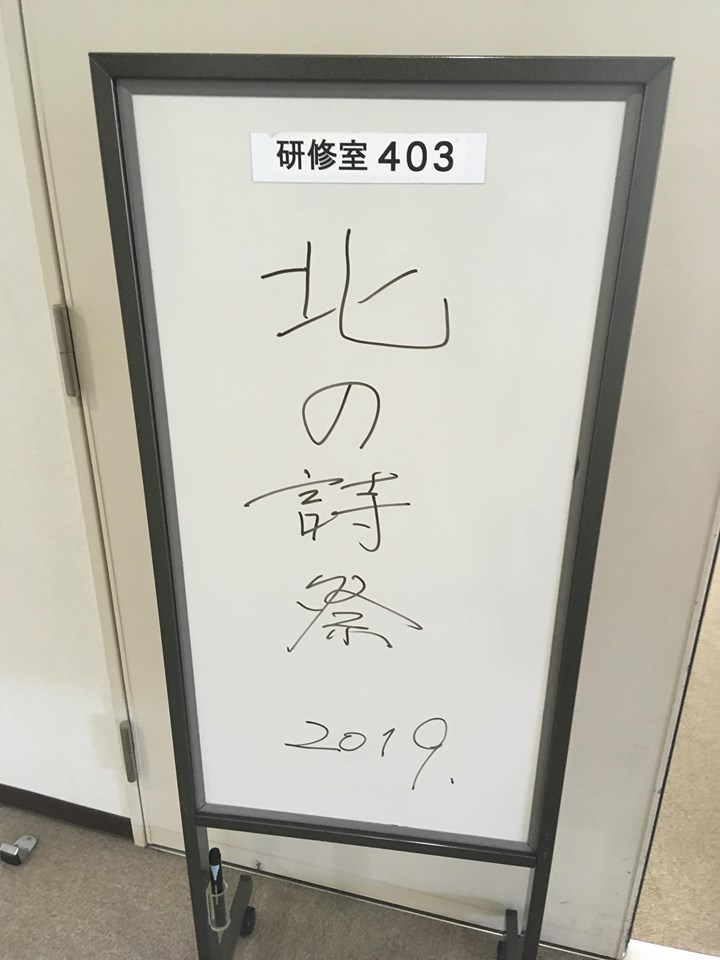 研修室 403
北の詩祭
2019.